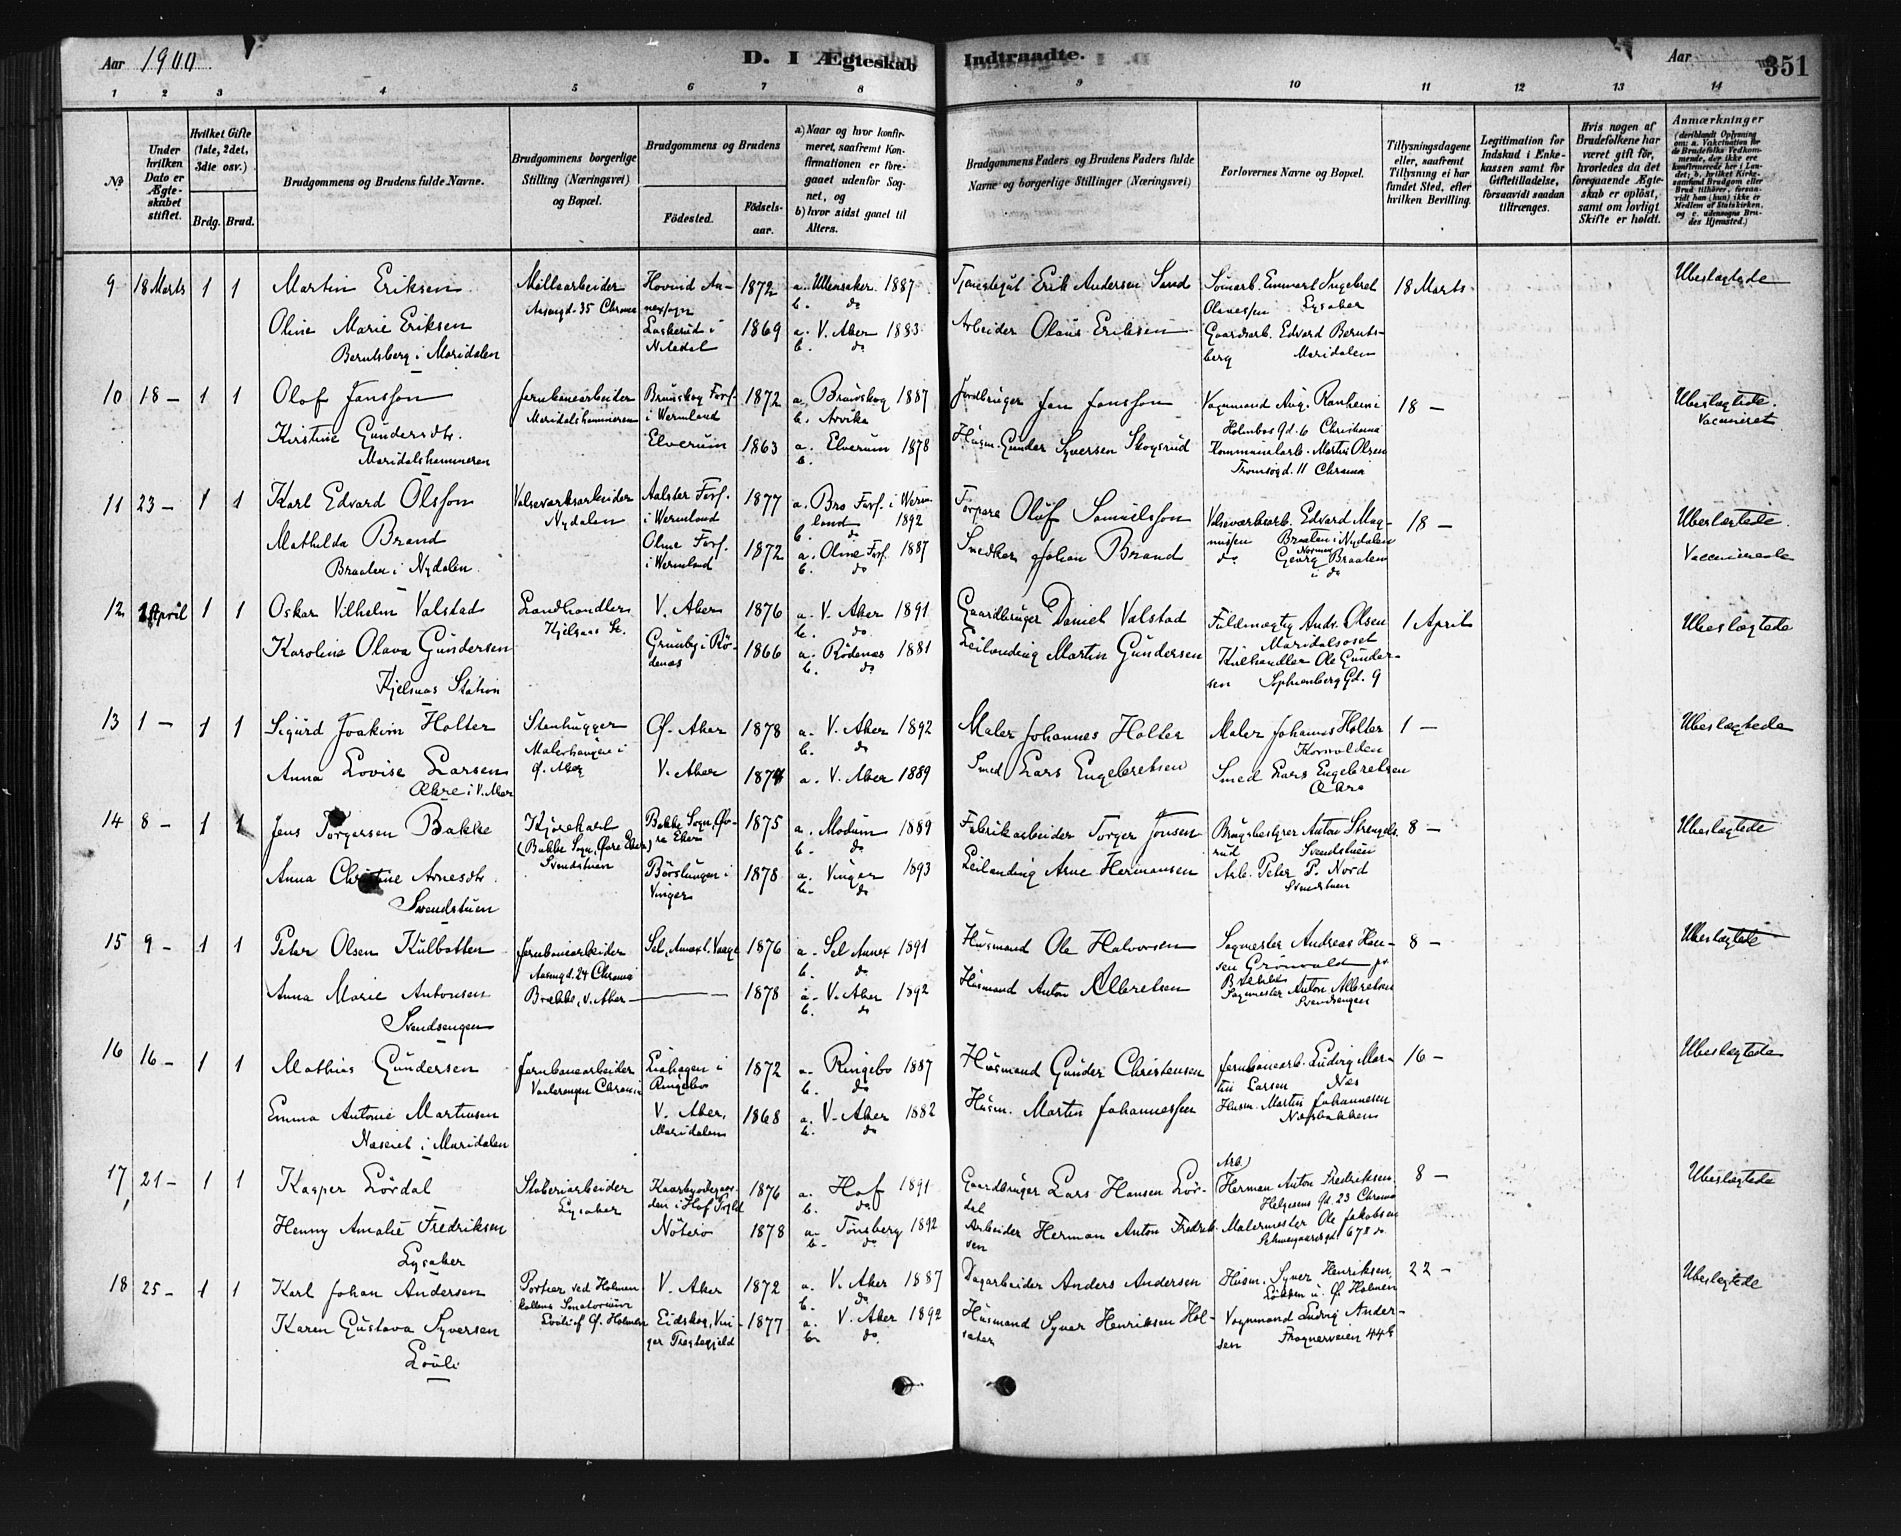 Aar 1900. D. I Ægteskab Indtraadte. Aar 351
1 2 3 4 5 6 7 8 9 10 11 12 13 14
№
Under hvilken Dato er Ægteskabet stiftet.
Hvilket Gifte (1ste, 2det, 3die osv.)
Brdg. Brud.
Brudgommens og Brudens fulde Navne.
Brudgommens borgerlige Stilling (Næringsvei) og Bopæl.
Brudgommens og Brudens
Fødested. Fødselsaar.
a) Naar og hvor konfirmeret, saafremt Konfirmationen er foregaaet udenfor Sognet, og
b) hvor sidst gaaet til Alters.
Brudgommens Faders og Brudens Faders fulde Navne og borgerlige Stillinger (Næringsvei)
Forlovernes Navne og Bopæl.
Tillysningsdagene eller, saafremt Tillysning ei har fundet Sted, efter hvilken Bevilling.
Legitimation for Indskud i Enkekassen samt for Giftetilladelse, forsaavidt saadan tiltrænges.
Hvis nogen af Brudefolkene har været gift før, hvorledes da det foregaaende Ægteskab er opløst, samt om lovligt Skifte er holdt.
Anmærkninger (deriblandt Oplysning om: a. Vaccination for de Brudefolks Vedkommende, der ikke ere konfirmerede her i Landet; b. hvilket Kirkesamfund Brudgom eller Brud tilhører, forsaavidt han (hun) ikke er Medlem af Statskirken, og c. udensogns Brudes Hjemsted.)
9 18 Marts 1 1 Martin Eriksen Møllearbeider Hovind An- 1872 a. Ullensaker 1887 Tjenestegut Erik Andersen Sand Emmert Ingebret 18 Marts Ubeslægtede
35 Chrania nexsogn b. do Olavessen Lysaker
Oline Marie Eriksen i 1869 a. V. Aker 1883 Arbeider Olaus Eriksen Gaardsarb. Edvard Bernts-
Berntsberg i Maridalen Nitedal b. do berg Maridalen
10 18 – 1 1 Olof Jansson Jernbanearbeider Brunskog Fors. 1872 a. Brunskog 1887 Jordbruger Jan Jansson Vognmand Aug. Ranheim i 18 – Ubeslægtede.
Maridalshammeren i Wermland b. Arvika Holmbos Gd. 6 Christiania Vaccineret
Kirstine Gundersdtr. Elverum 1863 a. Elverum 1878 Husm. Gunder Syversen Skogsrud Kommunalarb. Martin Olsen
Maridalshammeren b. Tromsøgd. 11 Chrania
11 23 – 1 1 Karl Edvard Olsson Valseverksarbeider Aalster Fors. 1877 a. Bro Fors. i Werm- Torpare Oluf Samuelsson Valseværksarb. Edvard Mag- 18 – Ubeslægtede.
Nydalen i Wermland land 1892 nussen Braaten i Nydalen
Mathilda Brand Olme Fors. 1872 a. Olme Fors. 1887 Snedker Johan Brand do Georg Norman Braaten Vaccinerede
Braaten i Nydalen. i Wermland b. do i do
12 1 April 1 1 Oskar Vilhelm Valstad Landhandler V. Aker 1876 a. V. Aker 1891 Gaardbruger Daniel Valstad Fuldmægtig Andr. Olsen 1 April Ubeslægtede
Kjelsaas St. b. do Maridalsoset
Karoline Olava Gundersen Grimby i Rø- 1866 a. Rødenæs 1881 Leilænding Martin Gundersen Kulhandler Ole Gunder-
Kjelsaas Station denæs b. do sen Sophienberg Gd. 9
13 1 – 1 1 Sigurd Joakim Holter Stenhugger Ø. Aker 1878 a. V. Aker 1892 Maler Johannes Holter Maler Johannes Holter 1 – Ubeslægtede
Malerhaugen i b. do Kornvolden
Anna Lovise Larsen Ø. Aker V. Aker 1874 a. V. Aker 1889 Smed Lars Engebretsen Smed Lars Engebretsen
i V. Aker
14 8 – 1 1 Jens Torgersen Bakke Kjørekarl Bakke Sogn, Øv- 1875 a. Modum 1889 Fabrikarbeider Torger Jonsen Brugsbestyrer Anton Strengels- 8 – Ubeslægtede
(Bakke Sogn, Øvre Eker) re Eker b. do rud Svendstuen
Anna Christine Arnesdtr. Svendstuen Børslungen i 1878 a. Vinger 1893 Leilænding Arne Hermansen Arb. Peter P. Nord
Svendstuen Vinger b. do Svendstuen
15 9 – 1 1 Peter Olsen Kulbotten Jernbanearbeider Sel, Annex t. Vaage 1876 a. Sel Annex 1891 Husmand Ole Halvorsen Sagmester Andreas Han- 8 – Ubeslægtede
24 Chrania b. do sen Grønvold
Anna Marie Antonsen Brække, V. Aker – 1878 a. V. Aker 1892 Husmand Anton Albretsen Sagmester Anton Albretsen
Svendsengen b. do Svendsengen
16 16 – 1 1 Mathias Gundersen Jernbanearbeider Liahagen i 1872 a. Ringebo 1887 Husmand Gunder Christensen Jernbanearb. Ludvig Mar- 16 – Ubeslægtede
Vaalerengen Chrania Ringebo b. do tin Larsen Næs
Emma Antonie Martinsen V. Aker, 1868 a. V. Aker 1882 Husm. Martin Johannessen Husm. Martin Johannesen
Næseie i Maridalen Maridalen b. do Næsbakken
17 21 – 1 1 Kasper Lørdal Støberiarbeider i Hof 1876 a. Hof 1891 Gaardbruger Lars Hansen Lør- Arb. Herman Anton Fredriksen 8 – Ubeslægtede
Lysaker b. do dal Helgesens Gd. 23 Chrania
Henny Amalie Fredriksen Nøterø 1878 a. Tønsberg 1892 Arbeider Herman Anton Fredrik- Malermester Ole Jakobsen
Lysaker b. do sen Schweigaardsgd. 67 do
18 25 – 1 1 Karl Johan Andersen Portier ved Holmen- V. Aker 1872 a. V. Aker 1887 Dagarbeider Anders Andersen Husm. Syver Henriksen 22 – Ubeslægtede
kollens Sanatorium b. do Ø. Holmen
Karen Gustava Syversen Ø. Holmen Eidskog, Vin- 1877 a. V. Aker 1892 Husmand Syver Henriksen Hol- Vognmand Ludvig Ander-
Løuli ger Prestegjeld b. do sæter sen Frognerveien 44